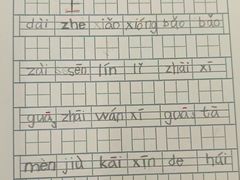 dài zhe xiǎo xióng bǎo bǎo
zài sēn lín lǐ zhāi xī
guā zhāi wán xī guā tā
mèn jiù kāi xīn de huí